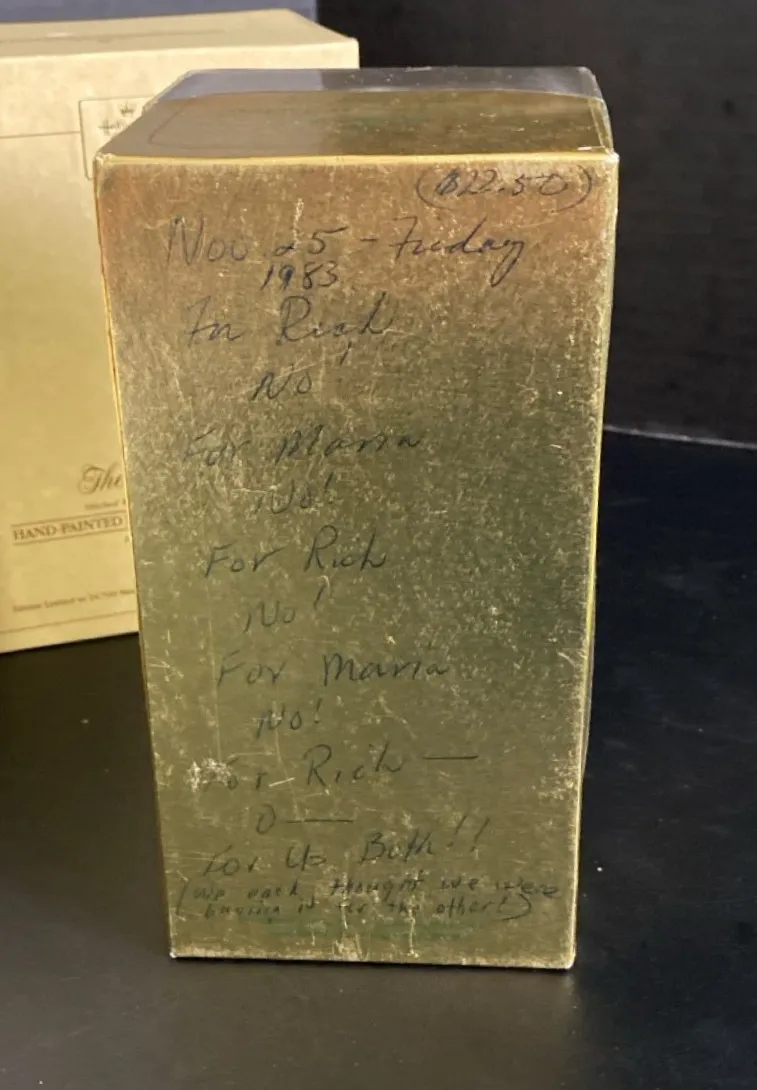 ($22.50)
Nov 25 - Friday
1983
For Rich
No!
For Maria
No!
For Rich
No!
For Maria
No!
For Rich —
O —
For Us Both!!
(we each thought we were
buying it for the other!)
The
HAND-PAINTED